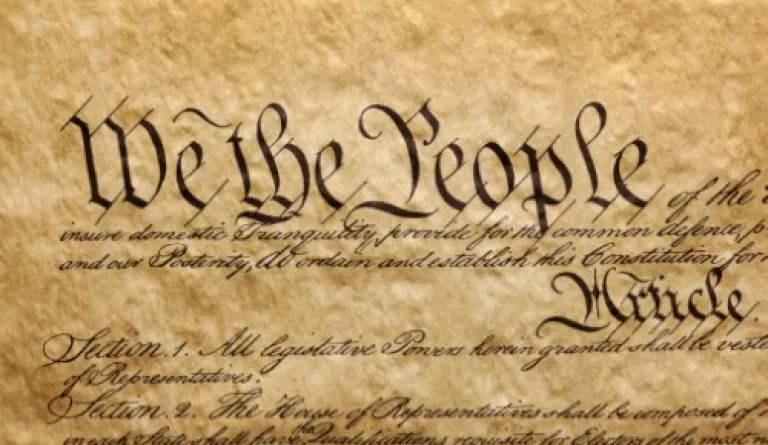 We the People of the
insure domestic Tranquility, provide for the common defence, p
and our Posterity, do ordain and establish this Constitution for
Article.
Section. 1. All legislative Powers herein granted shall be veste
of Representatives.
Section. 2. The House of Representatives shall be composed of
in each State shall have the Qualifications requisite for Electors of the most